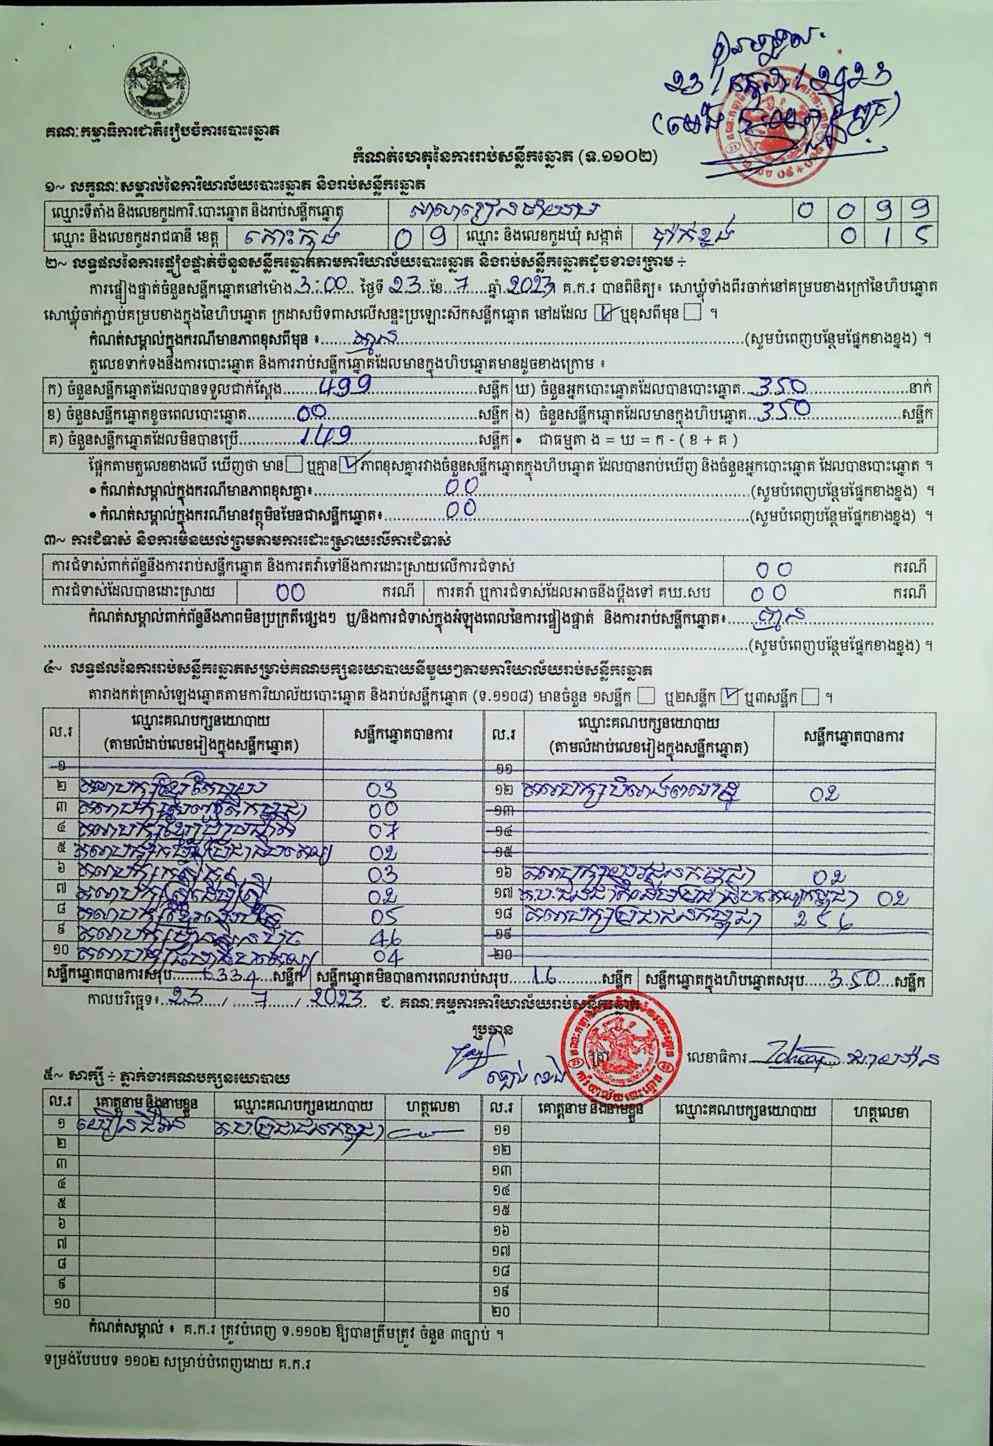 គណៈកម្មាធិការជាតិរៀបចំការបោះឆ្នោត
កំណត់ហេតុនៃការរាប់សន្លឹកឆ្នោត (ទ.១១០២)
១~ លក្ខណៈសម្គាល់នៃការិយាល័យបោះឆ្នោត និងរាប់សន្លឹកឆ្នោត
ឈ្មោះទីតាំង និងលេខកូដការិ.បោះឆ្នោត និងរាប់សន្លឹកឆ្នោត 0 0 9 9
ឈ្មោះ និងលេខកូដរាជធានី ខេត្ត កោះកុង 0 9 ឈ្មោះ និងលេខកូដឃុំ សង្កាត់ ប៉ាក់ខ្លង 0 1 5
២~ លទ្ធផលនៃការផ្ទៀងផ្ទាត់ចំនួនសន្លឹកឆ្នោតតាមការិយាល័យបោះឆ្នោត និងរាប់សន្លឹកឆ្នោតដូចខាងក្រោម ÷
ការផ្ទៀងផ្ទាត់ចំនួនសន្លឹកឆ្នោតនៅម៉ោង 3:00 ថ្ងៃទី 23 ខែ 7 ឆ្នាំ 2023 គ.ក.រ បានពិនិត្យ៖ សោឃ្លុំទាំងពីរចាក់នៅគម្របខាងក្រៅនៃហិបឆ្នោត
សោឃ្លុំចាក់ភ្ជាប់គម្របខាងក្នុងនៃហិបឆ្នោត ក្រដាសបិទពាសលើសន្ទះប្រឡោះសឹកសន្លឹកឆ្នោត នៅដដែល ☑ ឬខុសពីមុន ☐ ។
កំណត់សម្គាល់ក្នុងករណីមានភាពខុសពីមុន ៖ គ្មាន (សូមបំពេញបន្ថែមផ្នែកខាងខ្នង) ។
តួលេខទាក់ទងនឹងការបោះឆ្នោត និងការរាប់សន្លឹកឆ្នោតដែលមានក្នុងហិបឆ្នោតមានដូចខាងក្រោម ៖
ក) ចំនួនសន្លឹកឆ្នោតដែលបានទទួលជាក់ស្តែង 499 សន្លឹក ឃ) ចំនួនអ្នកបោះឆ្នោតដែលបានបោះឆ្នោត 350 នាក់
ខ) ចំនួនសន្លឹកឆ្នោតខូចពេលបោះឆ្នោត 00 សន្លឹក ង) ចំនួនសន្លឹកឆ្នោតដែលមានក្នុងហិបឆ្នោត 350 សន្លឹក
គ) ចំនួនសន្លឹកឆ្នោតដែលមិនបានប្រើ 149 សន្លឹក • ជាធម្មតា ង = ឃ = ក - ( ខ + គ )
ផ្អែកតាមតួលេខខាងលើ ឃើញថា មាន ☐ ឬគ្មាន ☑ ភាពខុសគ្នារវាងចំនួនសន្លឹកឆ្នោតក្នុងហិបឆ្នោត ដែលបានរាប់ឃើញ និងចំនួនអ្នកបោះឆ្នោត ដែលបានបោះឆ្នោត ។
• កំណត់សម្គាល់ក្នុងករណីមានភាពខុសគ្នា៖ 00 (សូមបំពេញបន្ថែមផ្នែកខាងខ្នង) ។
• កំណត់សម្គាល់ក្នុងករណីមានវត្ថុមិនមែនជាសន្លឹកឆ្នោត៖ 00 (សូមបំពេញបន្ថែមផ្នែកខាងខ្នង) ។
៣~ ការជំទាស់ និងការមិនយល់ព្រមតាមការដោះស្រាយលើការជំទាស់
ការជំទាស់ពាក់ព័ន្ធនឹងការរាប់សន្លឹកឆ្នោត និងការតវ៉ាទៅនឹងការដោះស្រាយលើការជំទាស់ 00 ករណី
ការជំទាស់ដែលបានដោះស្រាយ 00 ករណី ការតវ៉ា ឬការជំទាស់ដែលអាចនឹងប្តឹងទៅ គឃ.សប 00 ករណី
កំណត់សម្គាល់ពាក់ព័ន្ធនឹងភាពមិនប្រក្រតីផ្សេងៗ ឬ/និងការជំទាស់ក្នុងអំឡុងពេលនៃការផ្ទៀងផ្ទាត់ និងការរាប់សន្លឹកឆ្នោត៖ គ្មាន
(សូមបំពេញបន្ថែមផ្នែកខាងខ្នង) ។
៤~ លទ្ធផលនៃការរាប់សន្លឹកឆ្នោតសម្រាប់គណបក្សនយោបាយនីមួយៗតាមការិយាល័យរាប់សន្លឹកឆ្នោត
តារាងកត់ត្រាសំឡេងឆ្នោតតាមការិយាល័យបោះឆ្នោត និងរាប់សន្លឹកឆ្នោត (ទ.១១០៨) មានចំនួន ១សន្លឹក ☐ ឬ២សន្លឹក ☑ ឬ៣សន្លឹក ☐ ។
ល.រ ឈ្មោះគណបក្សនយោបាយ (តាមលំដាប់លេខរៀងក្នុងសន្លឹកឆ្នោត) សន្លឹកឆ្នោតបានការ ល.រ ឈ្មោះគណបក្សនយោបាយ (តាមលំដាប់លេខរៀងក្នុងសន្លឹកឆ្នោត) សន្លឹកឆ្នោតបានការ
១ ១១
២ 03 ១២ 02
៣ 00 ១៣
៤ 07 ១៤
៥ 02 ១៥
៦ 03 ១៦ 02
៧ 02 ១៧ 02
៨ 05 ១៨ គណបក្សប្រជាជនកម្ពុជា 256
៩ 46 ១៩
១០ 04 ២០
សន្លឹកឆ្នោតបានការសរុប 334 សន្លឹក សន្លឹកឆ្នោតមិនបានការពេលរាប់សរុប 16 សន្លឹក សន្លឹកឆ្នោតក្នុងហិបឆ្នោតសរុប 350 សន្លឹក
កាលបរិច្ឆេទ៖ 23 / 7 / 2023 ជ. គណៈកម្មការការិយាល័យរាប់សន្លឹកឆ្នោត
ប្រធាន
ត្រា លេខាធិការ
៥~ សាក្សី ÷ ភ្នាក់ងារគណបក្សនយោបាយ
ល.រ គោត្តនាម និងនាមខ្លួន ឈ្មោះគណបក្សនយោបាយ ហត្ថលេខា ល.រ គោត្តនាម និងនាមខ្លួន ឈ្មោះគណបក្សនយោបាយ ហត្ថលេខា
១ គ.ប.ប្រជាជនកម្ពុជា ១១
២ ១២
៣ ១៣
៤ ១៤
៥ ១៥
៦ ១៦
៧ ១៧
៨ ១៨
៩ ១៩
១០ ២០
កំណត់សម្គាល់ ៖ គ.ក.រ ត្រូវបំពេញ ទ.១១០២ ឱ្យបានត្រឹមត្រូវ ចំនួន ៣ច្បាប់ ។
ទម្រង់បែបបទ ១១០២ សម្រាប់បំពេញដោយ គ.ក.រ